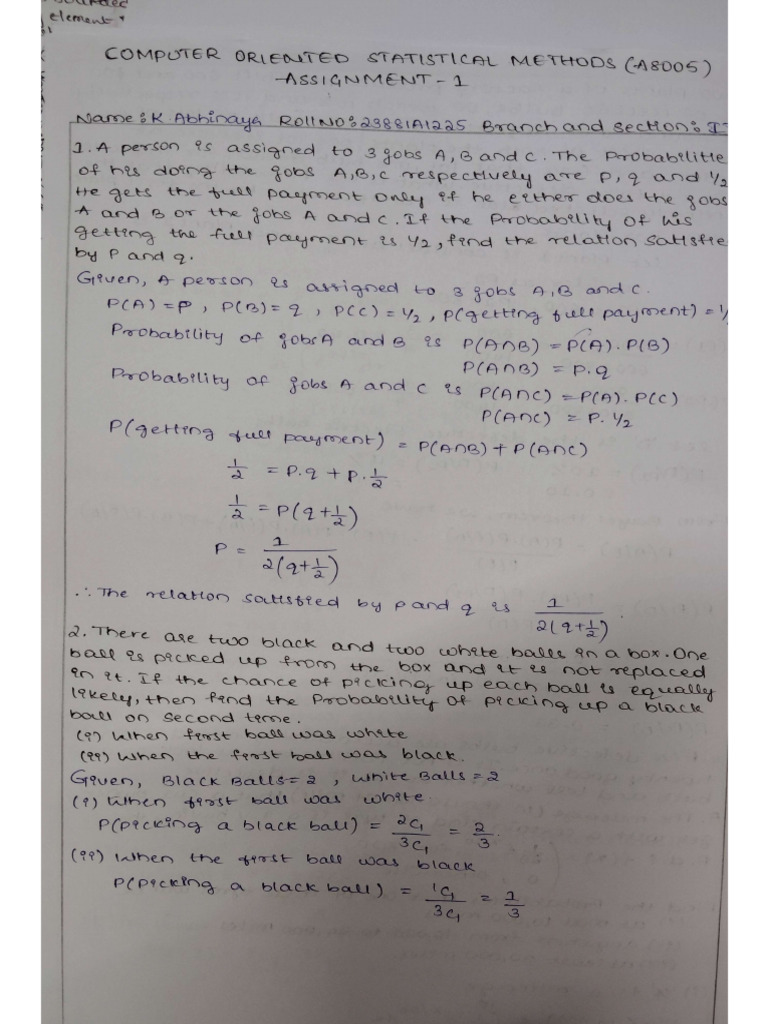 element
COMPUTER ORIENTED STATISTICAL METHODS (A8005)
ASSIGNMENT - 1
Name: K Abhinaya Roll NO: 23881A1225 Branch and section: IT
1. A person is assigned to 3 jobs A, B and C. The Probabilitie
of his doing the jobs A, B, C respectively are p, q and 1/2
He gets the full payment only if he either does the jobs
A and B or the jobs A and C. If the Probability of his
getting the full payment is 1/2, find the relation satisfie
by P and q.
Given, A person is assigned to 3 jobs A, B and C.
P(A) = P, P(B) = q, P(C) = 1/2, P(getting full payment) = 1/
Probability of jobs A and B is P(A∩B) = P(A). P(B)
P(A∩B) = P.q
Probability of jobs A and C is P(A∩C) = P(A). P(C)
P(A∩C) = P. 1/2
P(getting full payment) = P(A∩B) + P(A∩C)
1/2 = P.q + P. 1/2
1/2 = P(q + 1/2)
P = 1/2(q + 1/2)
∴ The relation satisfied by p and q is 1/2(q + 1/2).
2. There are two black and two white balls in a box. One
ball is picked up from the box and it is not replaced
in it. If the chance of picking up each ball is equally
likely, then find the Probability of picking up a black
ball on second time.
(i) When first ball was white
(ii) When the first ball was black.
Given, Black Balls = 2, White Balls = 2
(i) When first ball was white.
P(picking a black ball) = 2C1/3C1 = 2/3.
(ii) When the first ball was black
P(picking a black ball) = 1C1/3C1 = 1/3